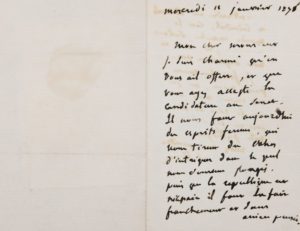 mercredi 12 janvier 1876
Mon cher monsieur
je suis charmé qu'on
vous ait offert, et que
vous ayez accepté la
candidature au Sénat.
Il nous faut aujourdhui
des esprits fermes qui
nous tirent du
d'intrigues dans lequel
nous sommes plongés.
puisque la republique est
il faut la faire
franchement et sans
arrière pensée.